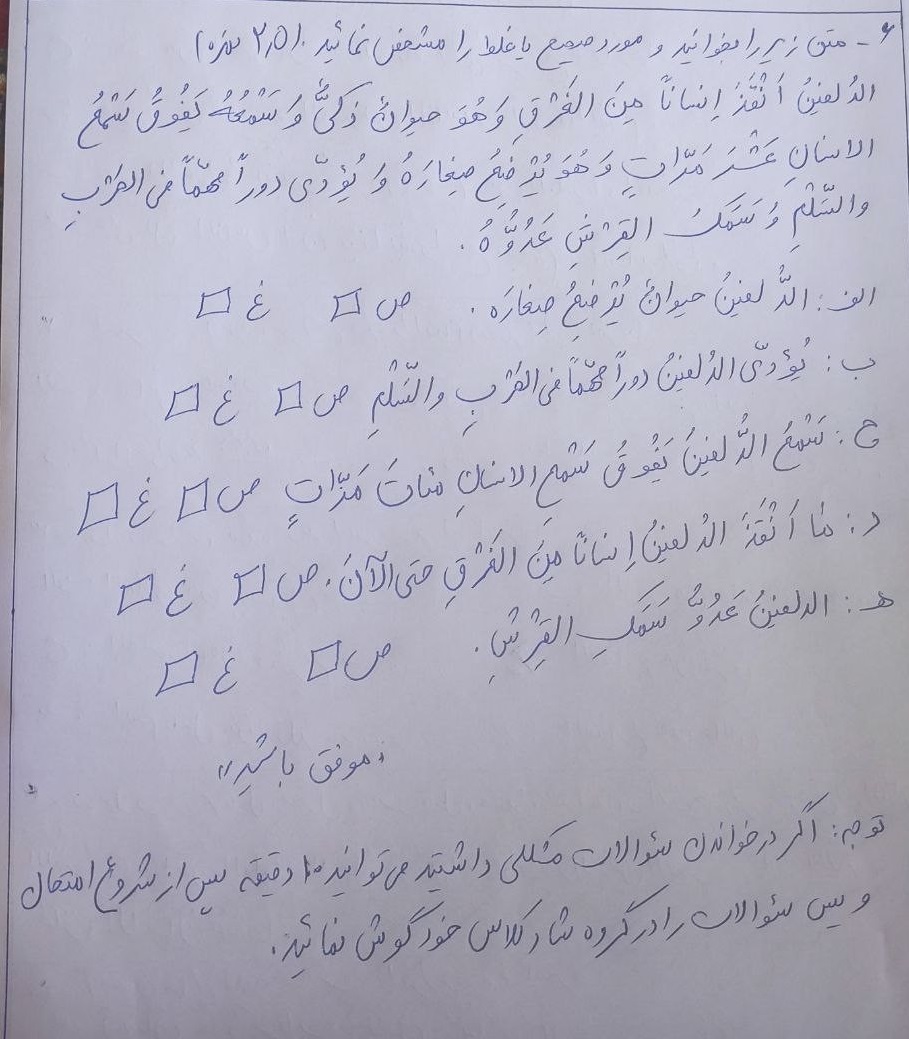 ۶- متن زیر را بخوانید و مورد صحیح یا غلط را مشخص نمائید. (۲,۵ نمره)
الدُلفینُ اَنْقَذَ اِنساناً مِنَ الغَرْقِ وَ هُوَ حیوانٌ ذَکیٌّ وَ سَمْعُهُ یَفُوقُ سَمْعَ
الانسانِ عَشْرَ مَرّاتٍ وَ هُوَ یُرْضِعُ صِغارَهُ وَ یُؤَدّی دوراً مُهمّاً فی الحَرْبِ
والسِّلْمِ وَ سَمَکُ القِرْشِ عَدُوُّهُ.
الف: الدُّلفینُ حیوانٌ یُرْضِعُ صِغارَه. ص □ غ □
ب: یُؤَدّی الدُلفینُ دوراً مُهمّاً فی الحَرْبِ والسِّلْمِ ص □ غ □
ج: سَمْعُ الدُّلفینُ یَفُوقُ سَمْعِ الانسانِ مئاتَ مَرّاتٍ ص □ غ □
د: مٰا اَنْقَذَ الدُلفینُ اِنساناً مِنَ الغَرْقِ حتی الآنَ. ص □ غ □
هـ: الدلفینُ عَدُوُّ سَمَکِ القِرْشِ. ص □ غ □
"موفق باشید"
توجه: اگر در خواندن سئوالات مشکلی داشتید می توانید ۱۰ دقیقه پس از شروع امتحان
ویس سئوالات را در گروه شاد کلاس خود گوش نمائید.